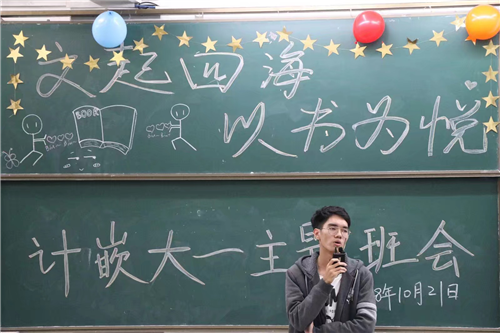 文起四海
BOOK
以书为悦
计嵌大一主题班会
8年10月21日